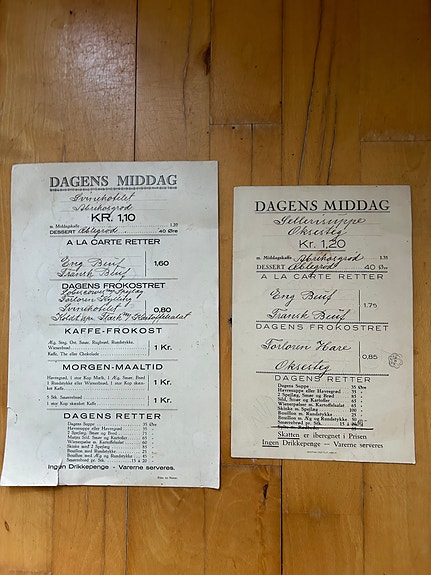 DAGENS MIDDAG
Svinekotelet
Abrikosgrød
KR. 1,10
m. Middagskaffe 1.20
DESSERT Æblegrød 40 Øre
A LA CARTE RETTER
Eng Beuf
Fransk Beuf
1,60
DAGENS FROKOSTRET
Forloren Kylling
Svinekotelet
0,80
Koldt Kartoffelsalat
KAFFE-FROKOST
Æg, Smg, Ost, Smør, Rugbrød, Rundstykke,
Wienerbrød
Kaffe, The eller Chokolade
1 Kr.
MORGEN-MAALTID
Havregrød, 1 stor Kop Mælk, 1 Æg, Smør, Brød
1 Rundstykke eller Wienerbrød, 1 stor Kop
Kaffe
1 Kr.
5 Stk. Smørrebrød
1 stor Kop skænket Kaffe
1 Kr.
DAGENS RETTER
Dagens Suppe 35 Øre
Havresuppe eller Havregrød 35 -
2 Spejlæg, Smør og Brød 75 -
Matjes Sild, Smør og Kartofler 65 -
Wienerpølser m. Kartoffelsalat 65 -
Skinke med 2 Spejlæg
Bouillon med Rundstykke
Bouillon med Æg og Rundstykke
Smørrebrød pr. Stk. 15 à 20 -
Ingen Drikkepenge - Varerne serveres.
DAGENS MIDDAG
Sellerisuppe
Oksesteg
Kr. 1,20
m. Middagskaffe Abrikosgrød 1.35
DESSERT Æblegrød 40 Øre
A LA CARTE RETTER
Eng Beuf
Fransk Beuf
1.75
DAGENS FROKOSTRET
Forloren Hare
Oksesteg
0,85
DAGENS RETTER
Dagens Suppe
Havresuppe eller Havregrød
2 Spejlæg, Smør og Brød
Sild, Smør og Kartofler
Wienerpølser m. Kartoffelsalat
Skinke m. Spejlæg
Bouillon m. Rundstykke
Bouillon m. Æg og Rundstykke
Smørrebrød pr. Stk.
Skatten er iberegnet i Prisen
Ingen Drikkepenge - Varerne serveres